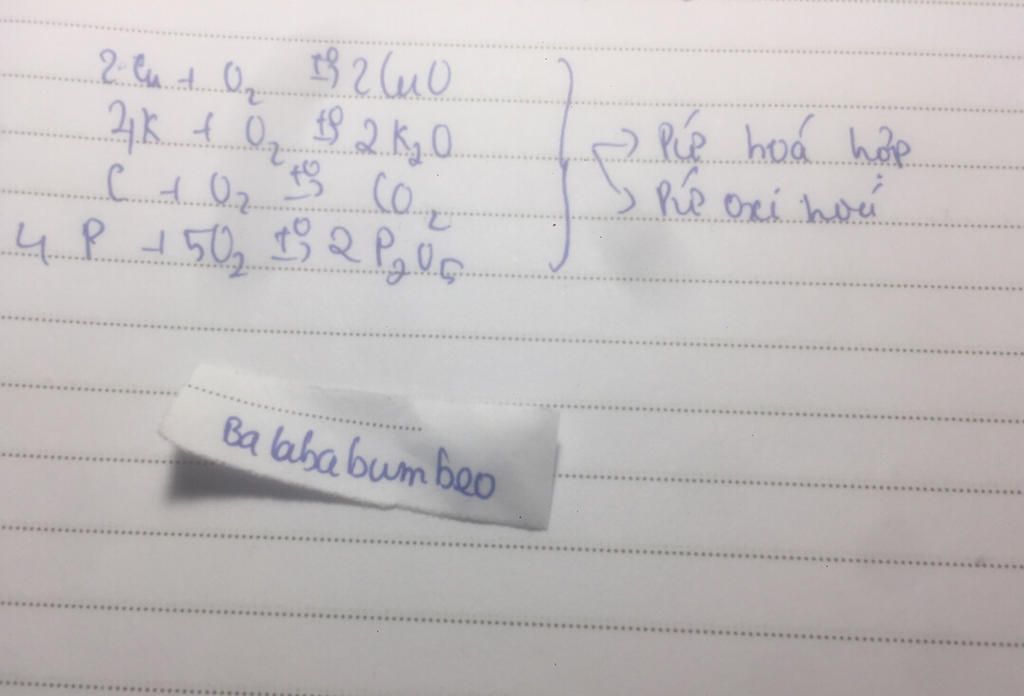 2 Cu + O₂ t° → 2 CuO
4K + O₂ t° → 2 K₂O
C + O₂ t° → CO₂
4 P + 5O₂ t° → 2 P₂O₅
→ P/ứ hoá hợp
→ P/ứ oxi hoá
Balababumbeo